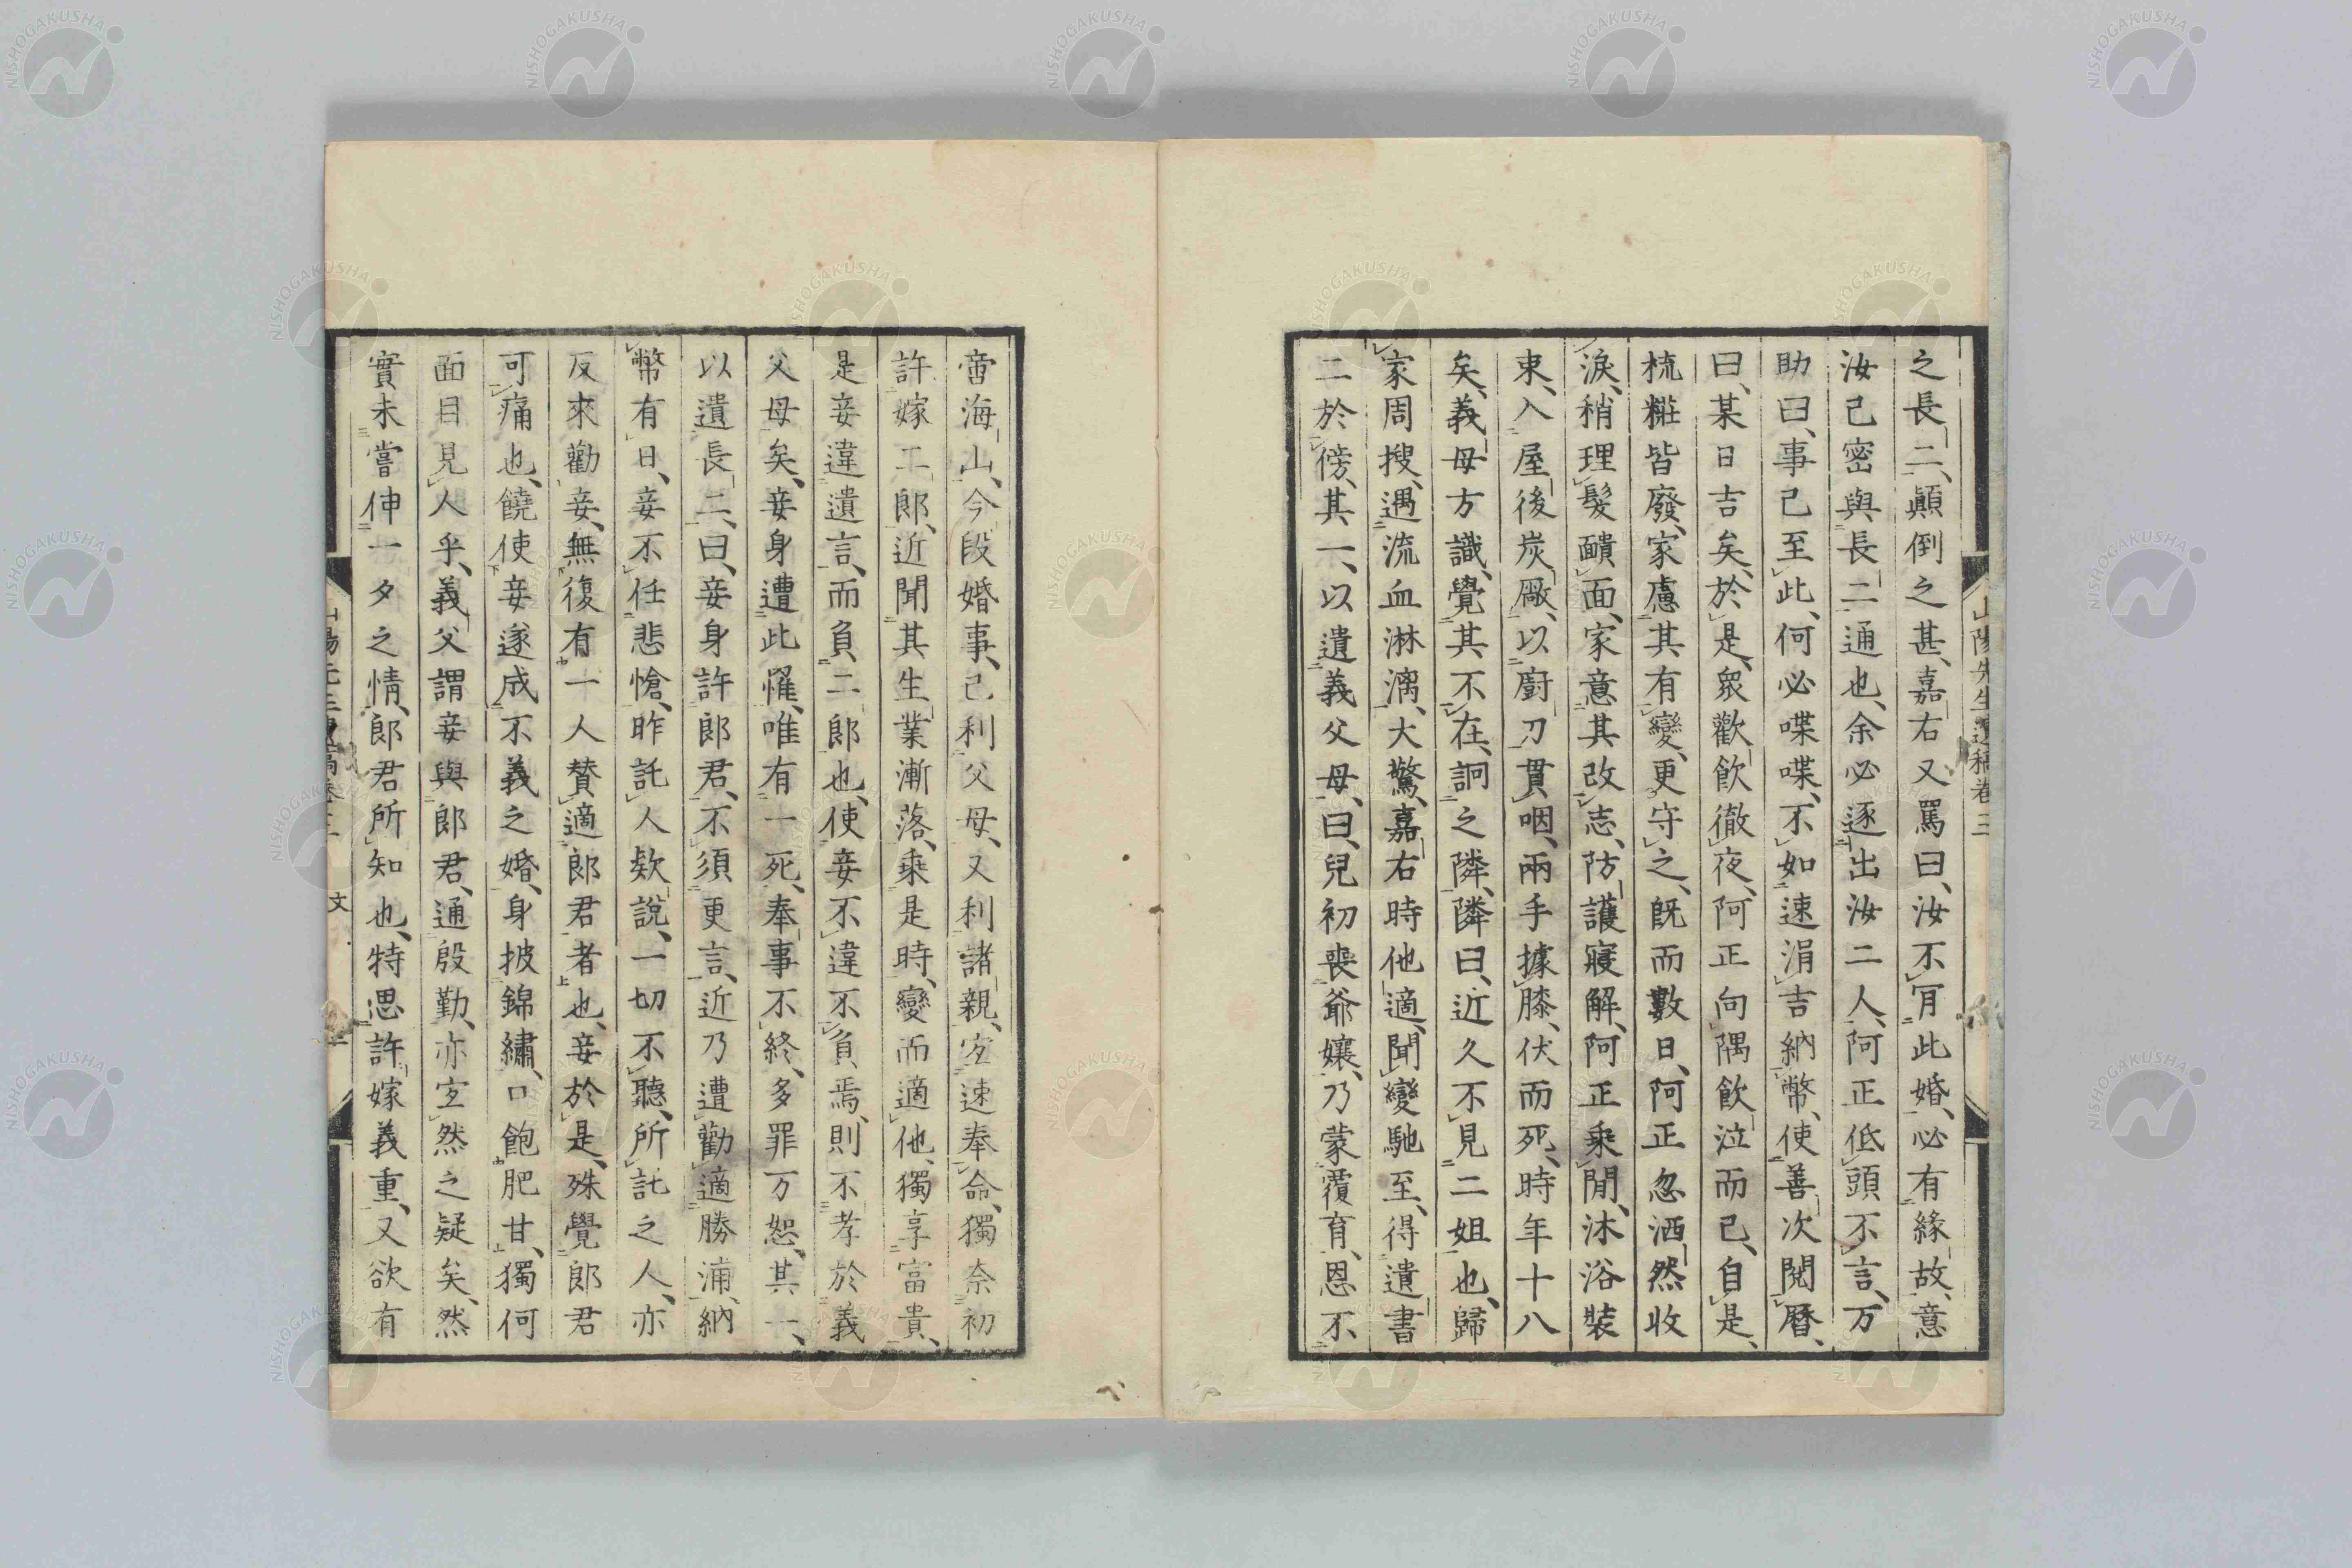 之長二、顚倒之甚、嘉右又罵曰、汝不肎此婚、必有緣故、意
汝已密與長二通也、余必逐出汝二人、阿正低頭不言、万
助曰、事已至此、何必喋喋、不如速涓吉納幣、使善次閱曆、
曰、某日吉矣、於是、衆歡飮徹夜、阿正向隅飮泣而已、自是、
梳糚皆廢、家慮其有變、更守之、旣而數日、阿正忽洒然收
淚、稍理髮靧面、家意其改志、防護寢解、阿正乘閒、沐浴裝
束、入屋後炭廠、以廚刀貫咽、兩手據膝、伏而死、時年十八
矣、義母方識覺其不在、詗之隣、隣曰、近久不見二姐也、歸
家周搜、遇流血淋漓、大驚、嘉右時他適、聞變馳至、得遺書
二於傍、其一、以遺義父母、曰、兒初喪爺孃、乃蒙覆育、恩不
啻海山、今段婚事、已利父母、又利諸親、宜速奉命、獨柰初
許嫁二郎、近聞其生業漸落、乘是時、變而適他、獨享富貴、
是妾違遺言、而負二郎也、使妾不違不負焉、則不孝於義
父母矣、妾身遭此罹、唯有一死、奉事不終、多罪万恕、其一、
以遺長二、曰、妾身許郎君、不須更言、近乃遭勸適勝浦、納
幣有日、妾不任悲愴、昨託人欵說、一切不聽、所託之人、亦
反來勸妾、無復有一人贊適郎君者也、妾於是、殊覺郎君
可痛也、饒使妾遂成不義之婚、身披錦繡、口飽肥甘、獨何
面目見人乎、義父謂妾與郎君、通殷勤、亦宜然之疑矣、然
實未嘗伸一夕之情、郎君所知也、特思許嫁義重、又欲有
山陽先生遺稿卷三
文
NISHOGAKUSHA